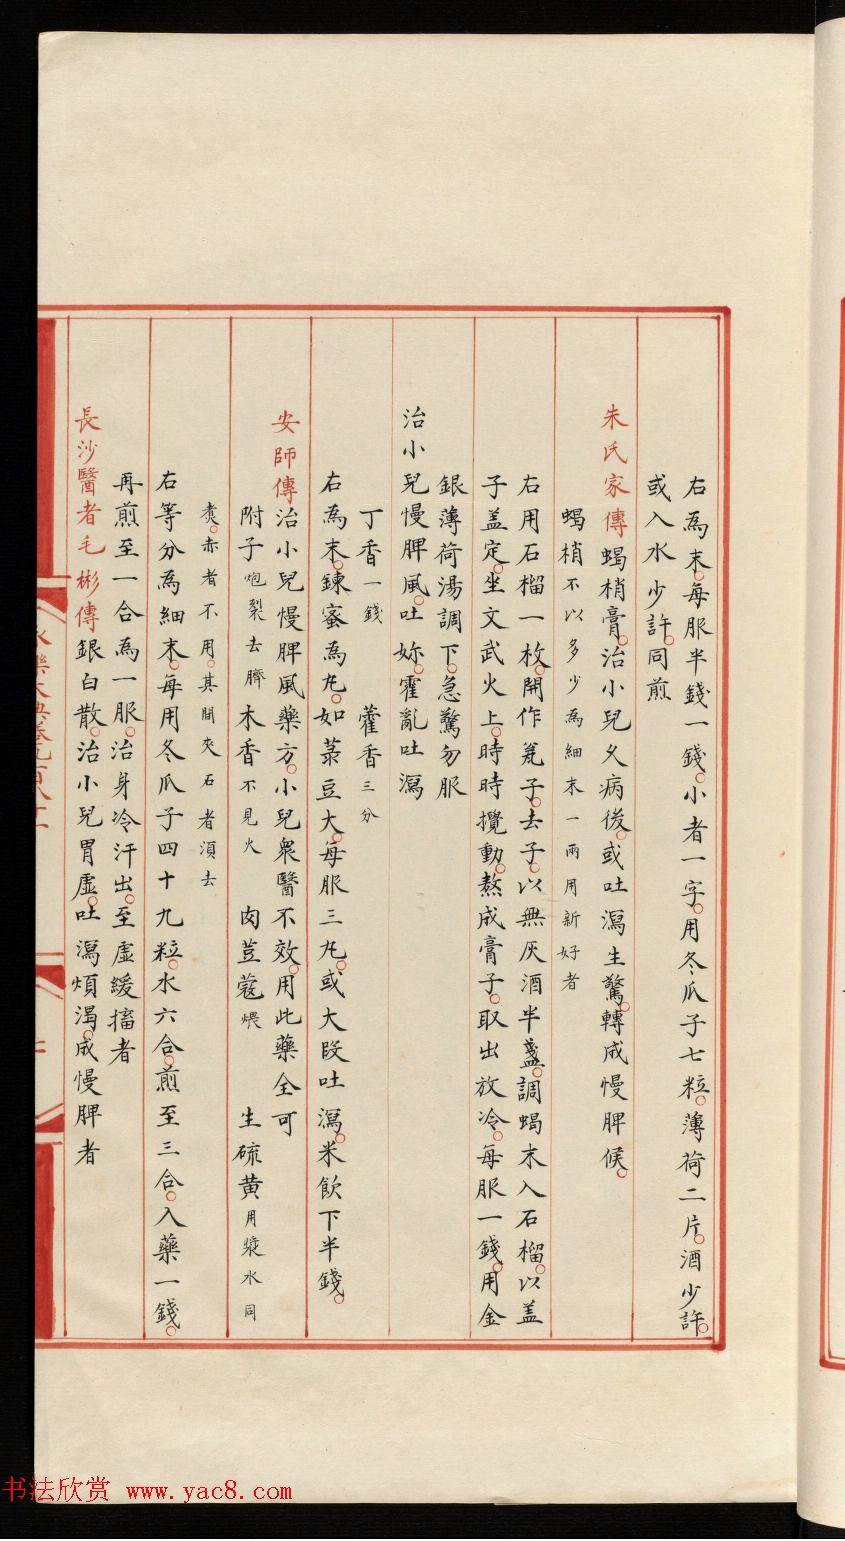 右為末。每服半錢一錢。小者一字。用冬瓜子七粒。薄荷二片。酒少許。
或入水少許。同煎
朱氏家傳蝎梢膏。治小兒久病後。或吐瀉生驚。轉成慢脾候。
蝎梢不以多少為細末一兩用新好者
右用石榴一枚。開作甕子。去子。以無灰酒半盞。調蝎末入石榴。以蓋
子盖定。坐文武火上。時時攪動。熬成膏子。取出放冷。每服一錢。用金
銀薄荷湯調下。急驚勿服
治小兒慢脾風。吐妳。霍亂吐瀉
丁香一錢 藿香三分
右為末。鍊蜜為丸。如菉豆大。每服三丸。或大段吐瀉。米飲下半錢。
安師傳治小兒慢脾風藥方。小兒衆醫不效。用此藥全可
附子炮裂去臍 木香不見火 肉荳蔻煨 生硫黄用漿水同
煑。赤者不用。其間夾石者湏去
右等分為細末。每用冬瓜子四十九粒。水六合。煎至三合。入藥一錢。
再煎至一合為一服。治身冷汗出。至虛緩搐者
長沙醫者毛彬傳銀白散。治小兒胃虛。吐瀉煩渴。成慢脾者
永樂大典卷九百八十一
书法欣赏 www.yac8.com